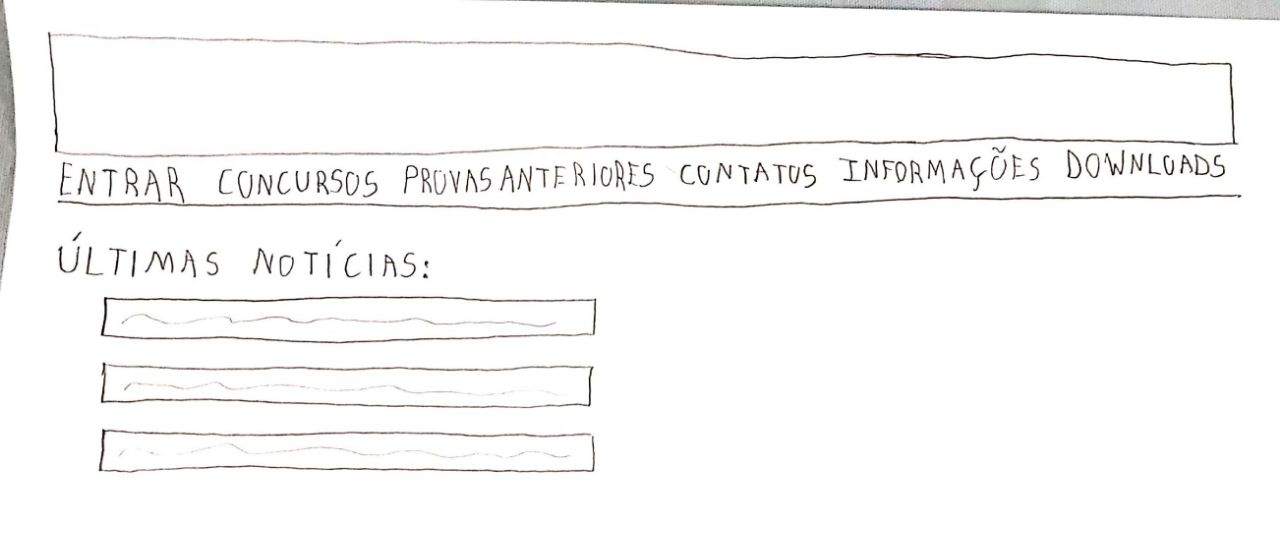 ENTRAR CONCURSOS PROVAS ANTERIORES CONTATOS INFORMAÇÕES DOWNLOADS
ÚLTIMAS NOTÍCIAS: